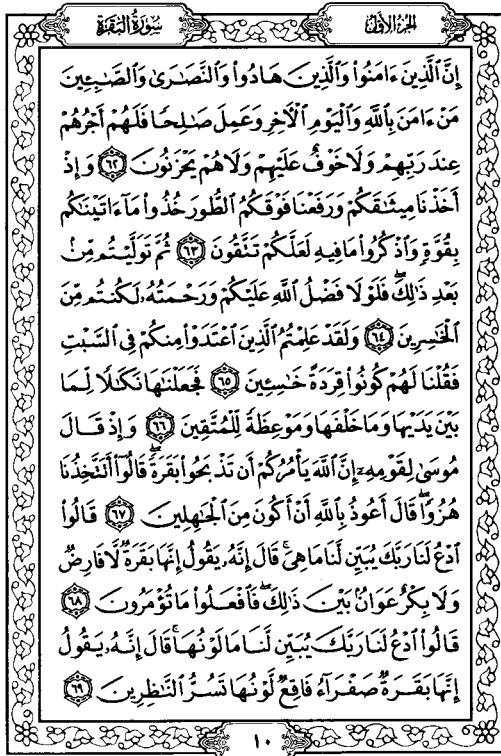 الجزء الأول
سورة البقرة
إِنَّ الَّذِينَ ءَامَنُوا وَالَّذِينَ هَادُوا وَالنَّصَٰرَىٰ وَالصَّٰبِـِٔينَ
مَنْ ءَامَنَ بِاللَّهِ وَالْيَوْمِ الْءَاخِرِ وَعَمِلَ صَٰلِحًا فَلَهُمْ أَجْرُهُمْ
عِندَ رَبِّهِمْ وَلَا خَوْفٌ عَلَيْهِمْ وَلَا هُمْ يَحْزَنُونَ ٦٢ وَإِذْ
أَخَذْنَا مِيثَٰقَكُمْ وَرَفَعْنَا فَوْقَكُمُ الطُّورَ خُذُوا مَآ ءَاتَيْنَٰكُم
بِقُوَّةٍ وَاذْكُرُوا مَا فِيهِ لَعَلَّكُمْ تَتَّقُونَ ٦٣ ثُمَّ تَوَلَّيْتُم مِّنۢ
بَعْدِ ذَٰلِكَ ۖ فَلَوْلَا فَضْلُ اللَّهِ عَلَيْكُمْ وَرَحْمَتُهُۥ لَكُنتُم مِّنَ
الْخَٰسِرِينَ ٦٤ وَلَقَدْ عَلِمْتُمُ الَّذِينَ اعْتَدَوْا مِنكُمْ فِي السَّبْتِ
فَقُلْنَا لَهُمْ كُونُوا قِرَدَةً خَٰسِـِٔينَ ٦٥ فَجَعَلْنَٰهَا نَكَٰلًا لِّمَا
بَيْنَ يَدَيْهَا وَمَا خَلْفَهَا وَمَوْعِظَةً لِّلْمُتَّقِينَ ٦٦ وَإِذْ قَالَ
مُوسَىٰ لِقَوْمِهِۦٓ إِنَّ اللَّهَ يَأْمُرُكُمْ أَن تَذْبَحُوا بَقَرَةً ۖ قَالُوٓا أَتَتَّخِذُنَا
هُزُوًا ۖ قَالَ أَعُوذُ بِاللَّهِ أَنْ أَكُونَ مِنَ الْجَٰهِلِينَ ٦٧ قَالُوا
ادْعُ لَنَا رَبَّكَ يُبَيِّن لَّنَا مَا هِيَ ۚ قَالَ إِنَّهُۥ يَقُولُ إِنَّهَا بَقَرَةٌ لَّا فَارِضٌ
وَلَا بِكْرٌ عَوَانٌۢ بَيْنَ ذَٰلِكَ ۖ فَافْعَلُوا مَا تُؤْمَرُونَ ٦٨
قَالُوا ادْعُ لَنَا رَبَّكَ يُبَيِّن لَّنَا مَا لَوْنُهَا ۚ قَالَ إِنَّهُۥ يَقُولُ
إِنَّهَا بَقَرَةٌ صَفْرَآءُ فَاقِعٌ لَّوْنُهَا تَسُرُّ النَّٰظِرِينَ ٦٩
١٠